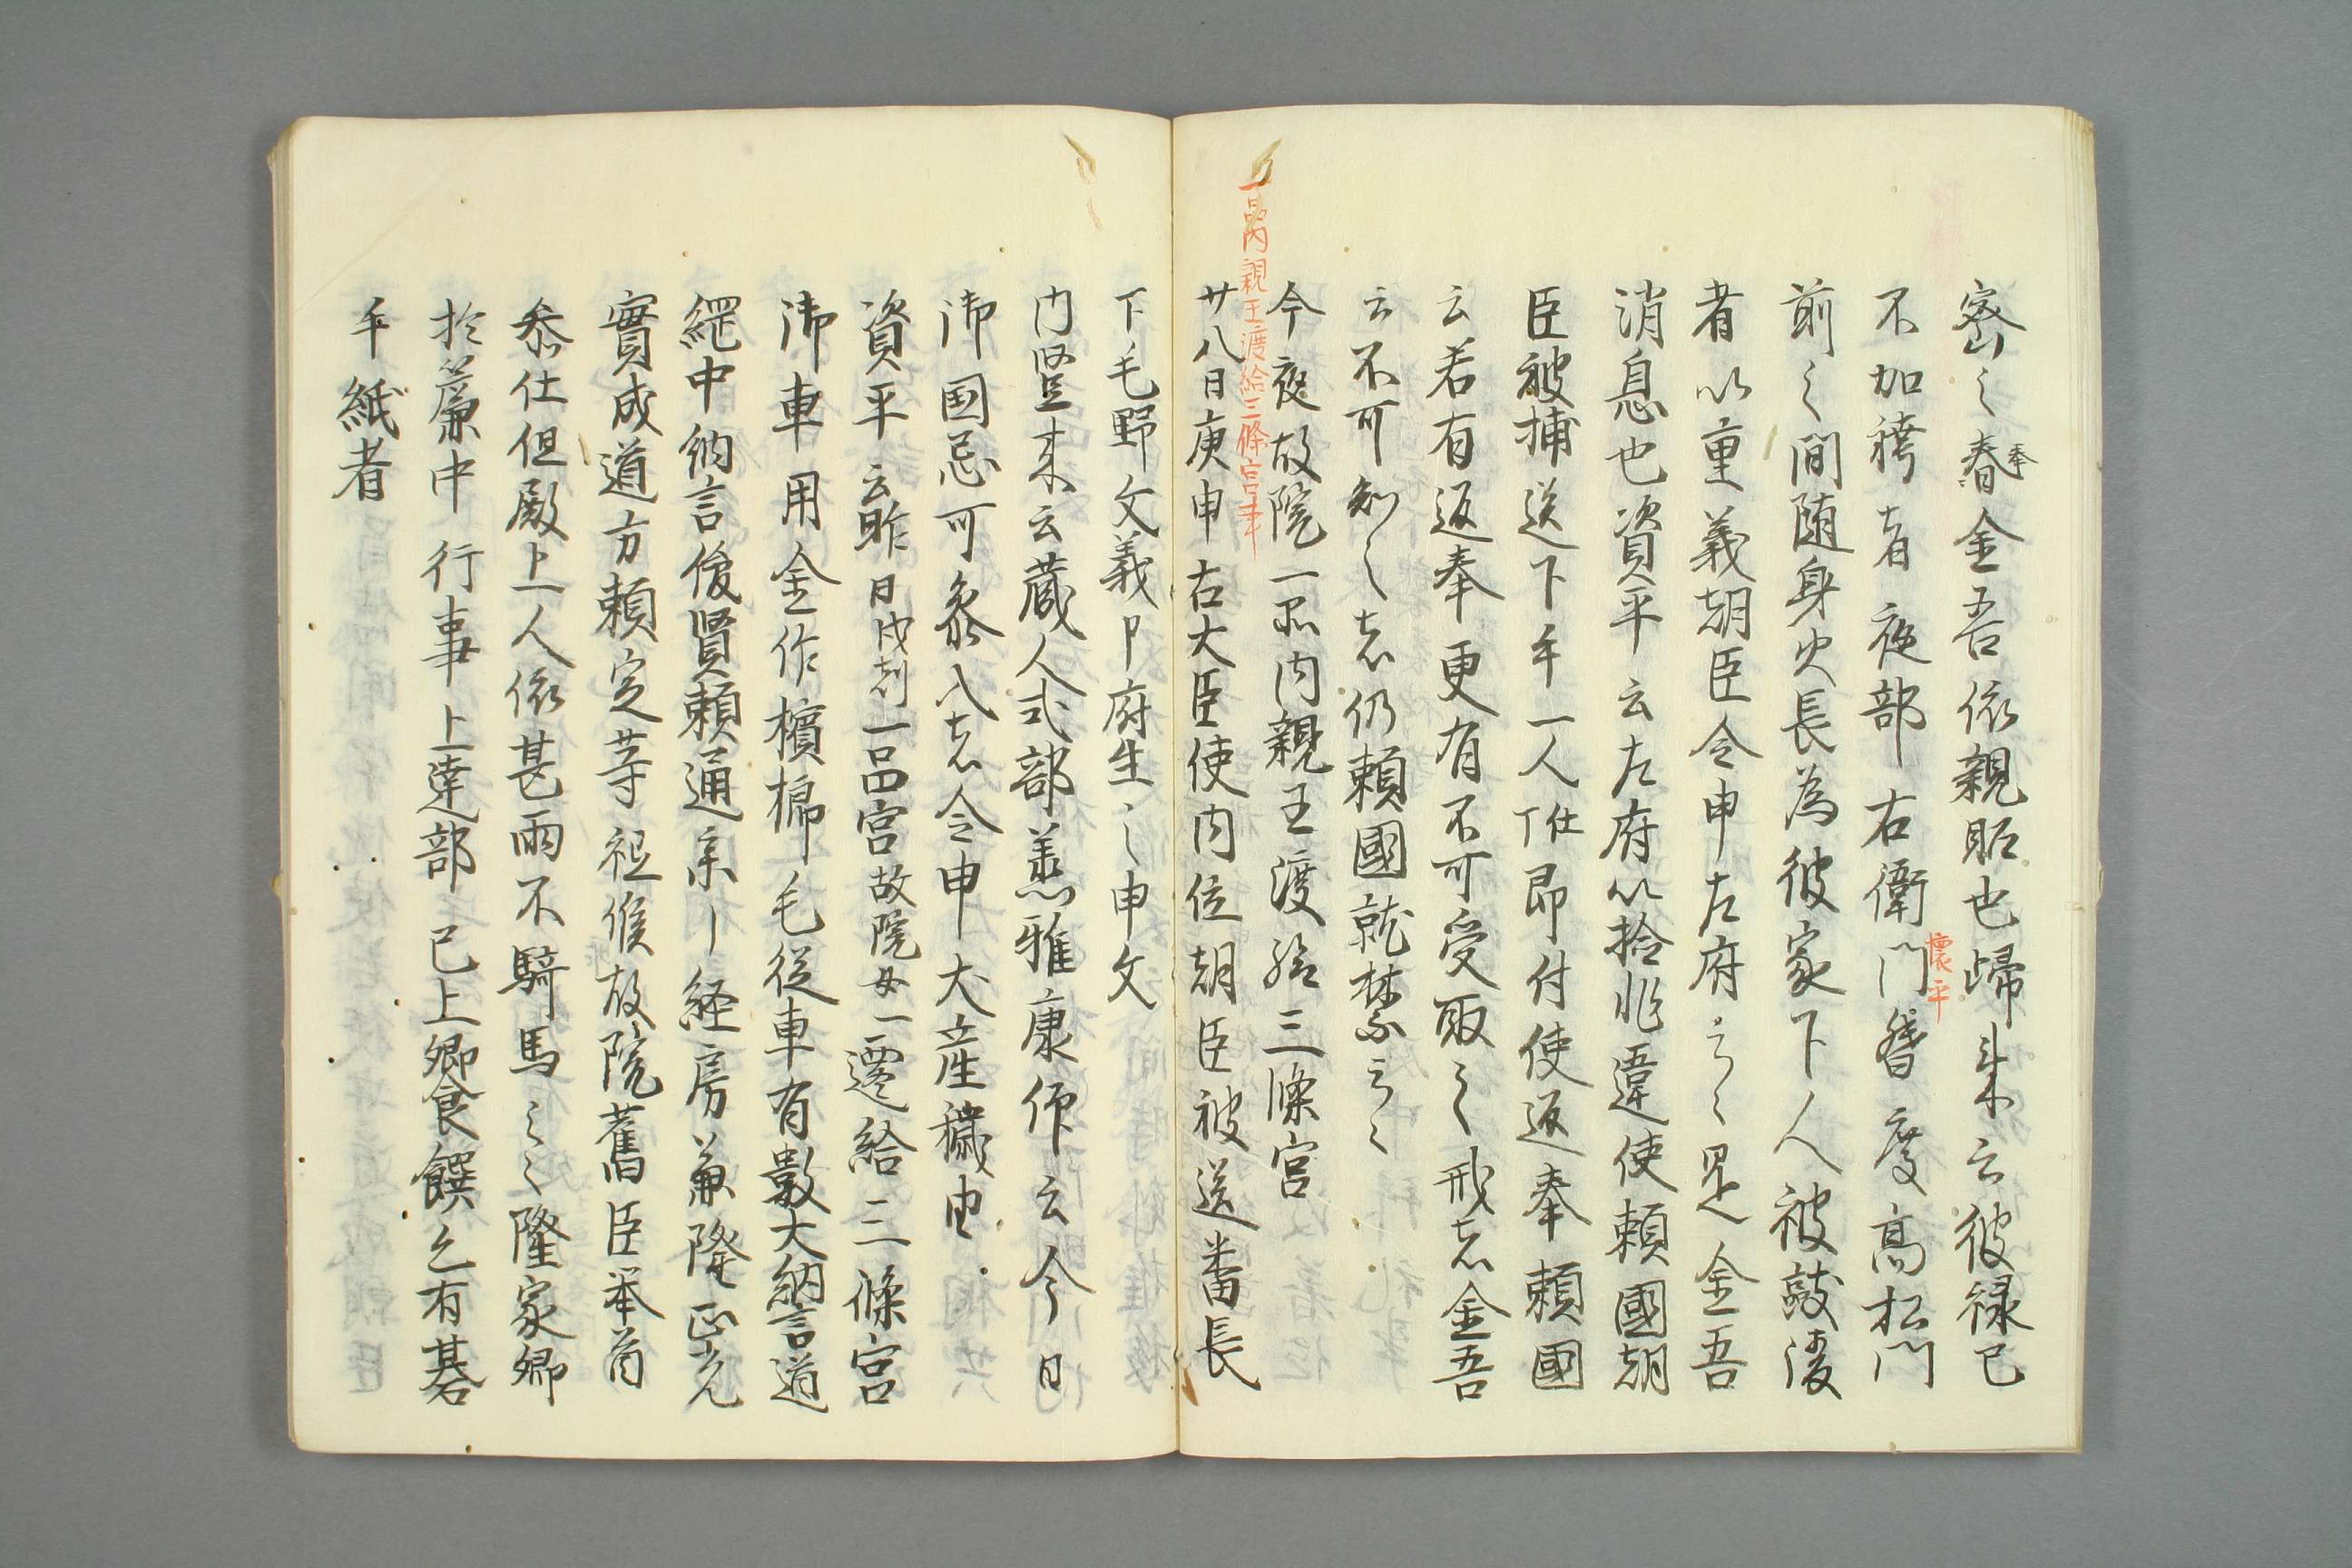 密〻奉金吾依親昵也帰来云彼禄已
不加袴者夜部右衛門督度高松門
懐平
前之間随身火長為彼家下人被敲凌
者以重義朝臣令申左府云〻是金吾
消息也資平云左府以捨非違使頼國朝
臣被捕送下手一人仕丁即付使返奉頼國
云若有返奉更有不可受取之戒者金吾
云不可知之者仍頼國就禁云〻
一品内親王渡給三條宮事
今夜故院一品内親王渡給三條宮
廿八日庚申右大臣使内位朝臣被送番長
下毛野文義申府生之申文
内竪来云蔵人式部丞雅康仰云今日
御国忌可参入者令申犬産穢由
資平云昨日戌剋一品宮故院女一遷給三條宮
御車用金作檳榔毛従車有數大納言道
綱中納言俊賢頼通参ー経房兼隆正光
實成道方頼定等祗候故院舊臣挙首
参仕但殿上人依甚雨不騎馬〻〻隆家卿
於簾中行事上達部已上卿食饌了有碁
手紙者